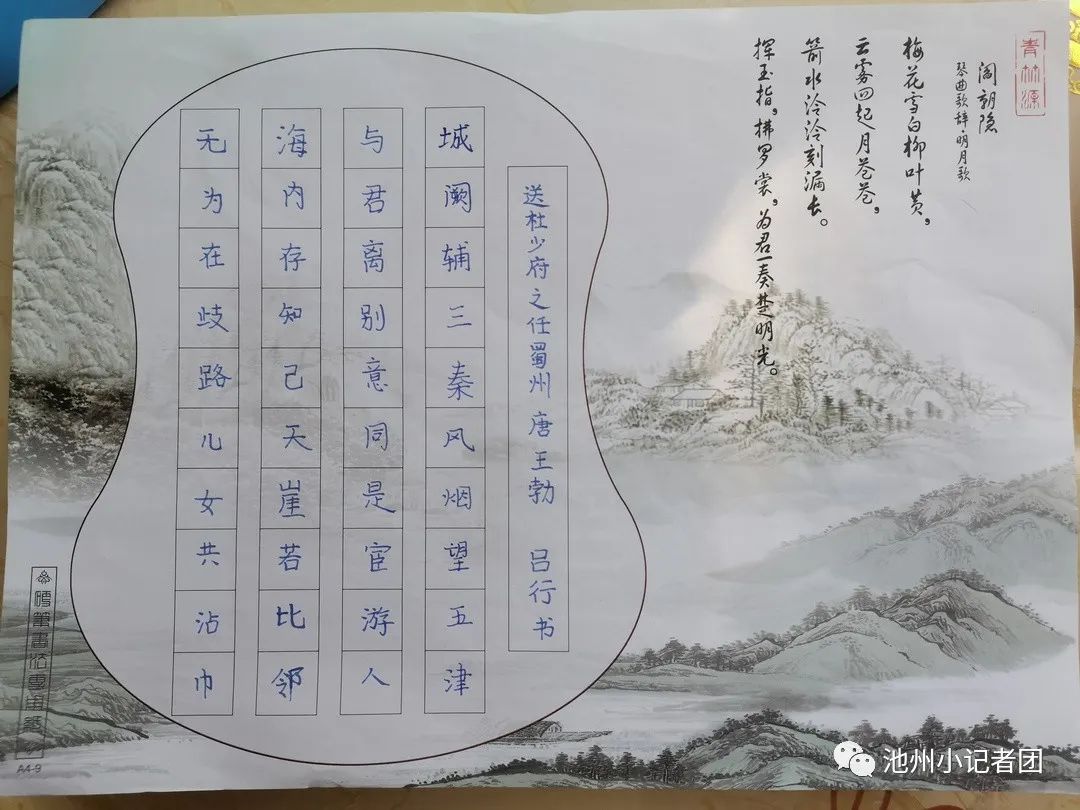 青林源
阎朝隐
琴曲歌辞·明月歌
梅花雪白柳叶黄,
云雾四起月苍苍,
箭水泠泠刻漏长。
挥玉指,拂罗裳,为君一奏楚明光。
送杜少府之任蜀州 唐 王勃 吕行书
城阙辅三秦风烟望五津
与君离别意同是宦游人
海内存知己天崖若比邻
无为在歧路儿女共沾巾
硬笔书法专用纸
A4-9
池州小记者团